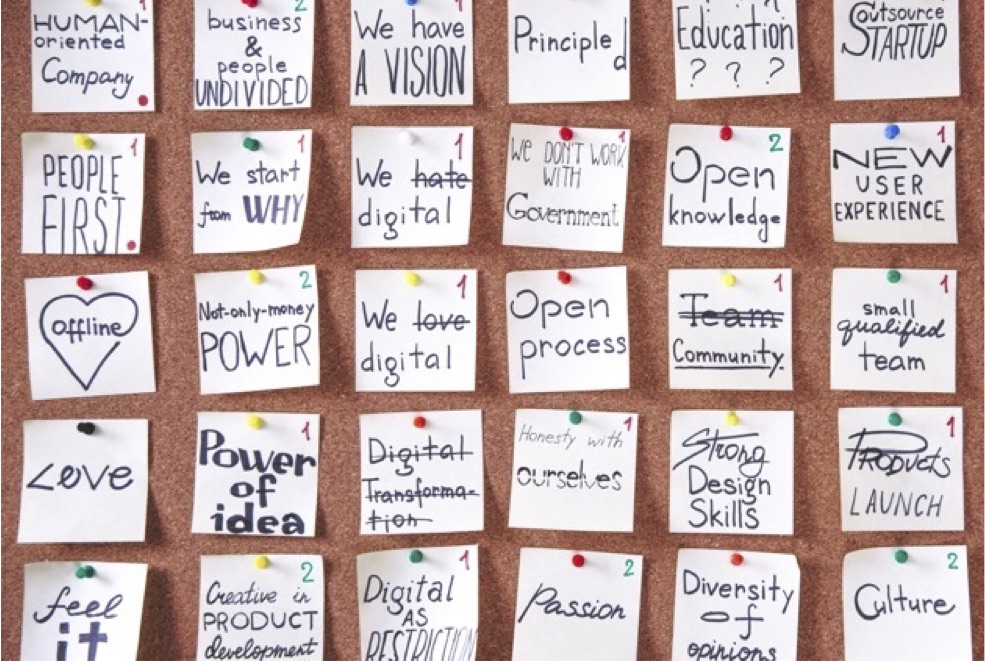 1
HUMAN-
oriented
Company
2
business
&
people
UNDIVIDED
1
We have
A VISION
Principled
Education
? ? ?
Outsource
STARTUP
1
PEOPLE
FIRST
1
We start
from WHY
1
We hate
digital
1
We DON'T WORK
WITH
Government
2
Open
knowledge
1
NEW
USER
EXPERIENCE
offline
2
Not-only-money
POWER
1
We love
digital
Open
process
1
Team
Community
1
small
qualified
team
Love
1
Power
of
idea
Digital
Transforma-
tion
1
Honesty with
ourselves
Strong
Design
Skills
1
Products
LAUNCH
feel
it
2
Creative in
PRODUCT
development
1
Digital
AS
RESTRICTION
2
Passion
Diversity
of
opinions
2
Culture